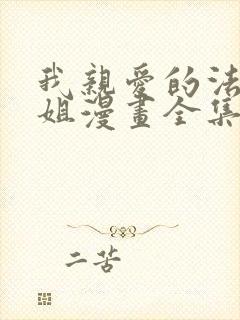 我親愛的法
姐漫畫全集
二苦